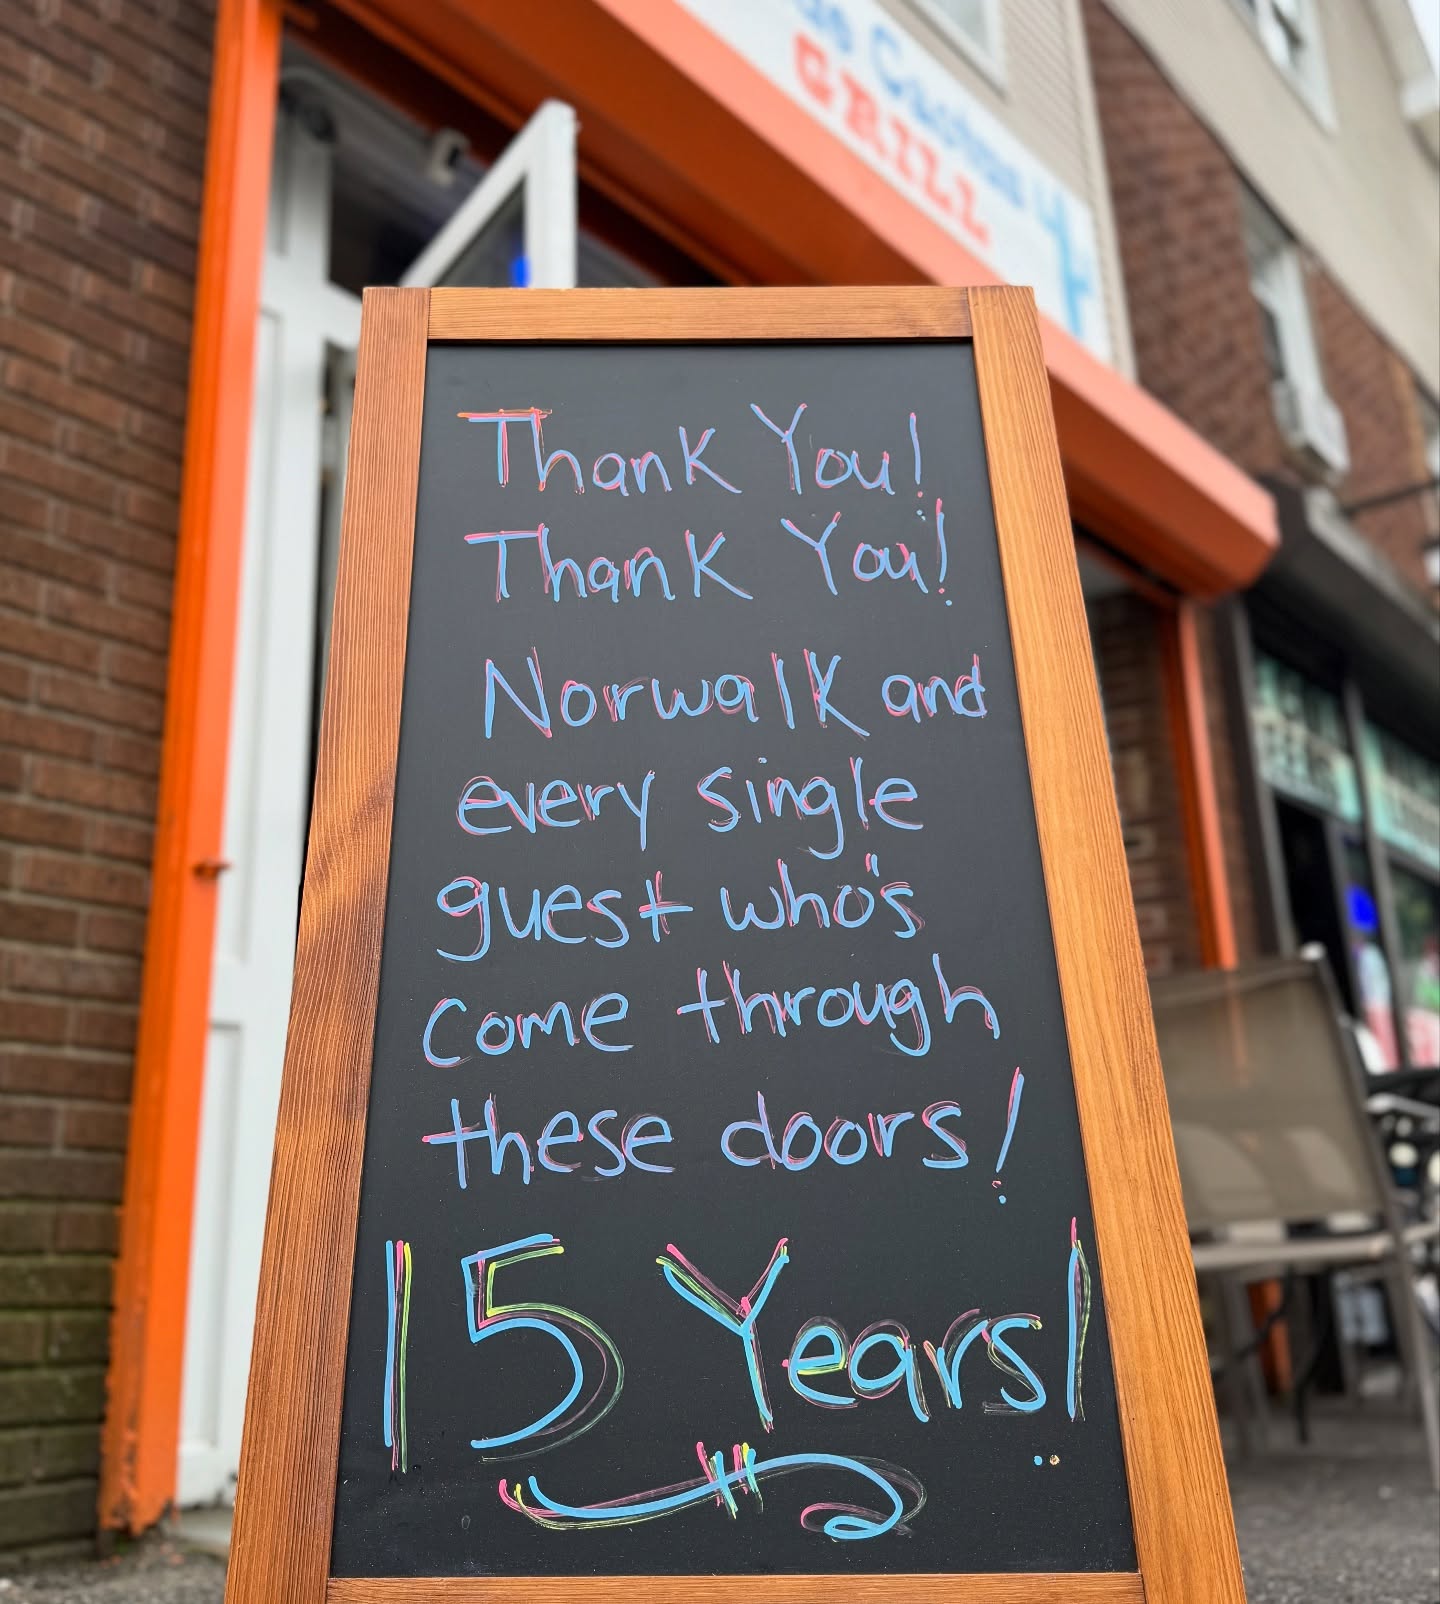 Cactus
GRILL
Thank You!
Thank You!
Norwalk and
every single
guest who's
come through
these doors!
15 Years!